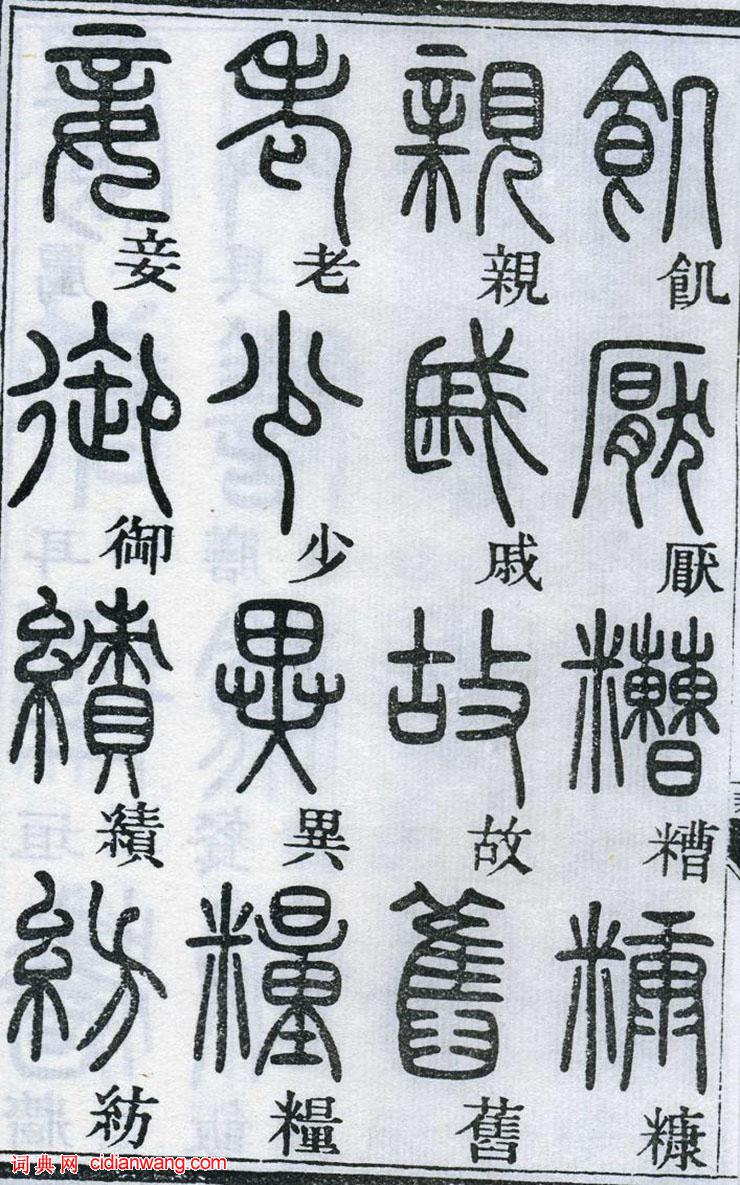 飢厭糟糠
親戚故舊
老少異糧
妾御績紡
词典网 cidianwang.com